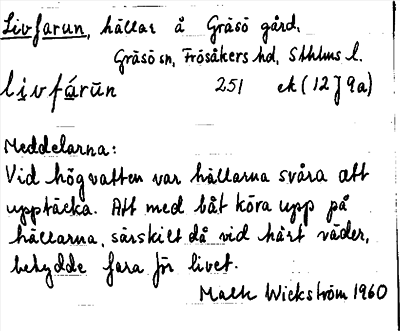 Livfarun, hällar å Gräsö gård,
Gräsö sn, Frösåkers hd, Sthlms l.
li̱vfá̱rūn 251 ek (12 J 9a)
Meddelarna:
Vid högvatten var hällarna svåra att
upptäcka. Att med båt köra upp på
hällarna, särskilt då vid hårt väder,
betydde fara för livet.
Wickström 1960